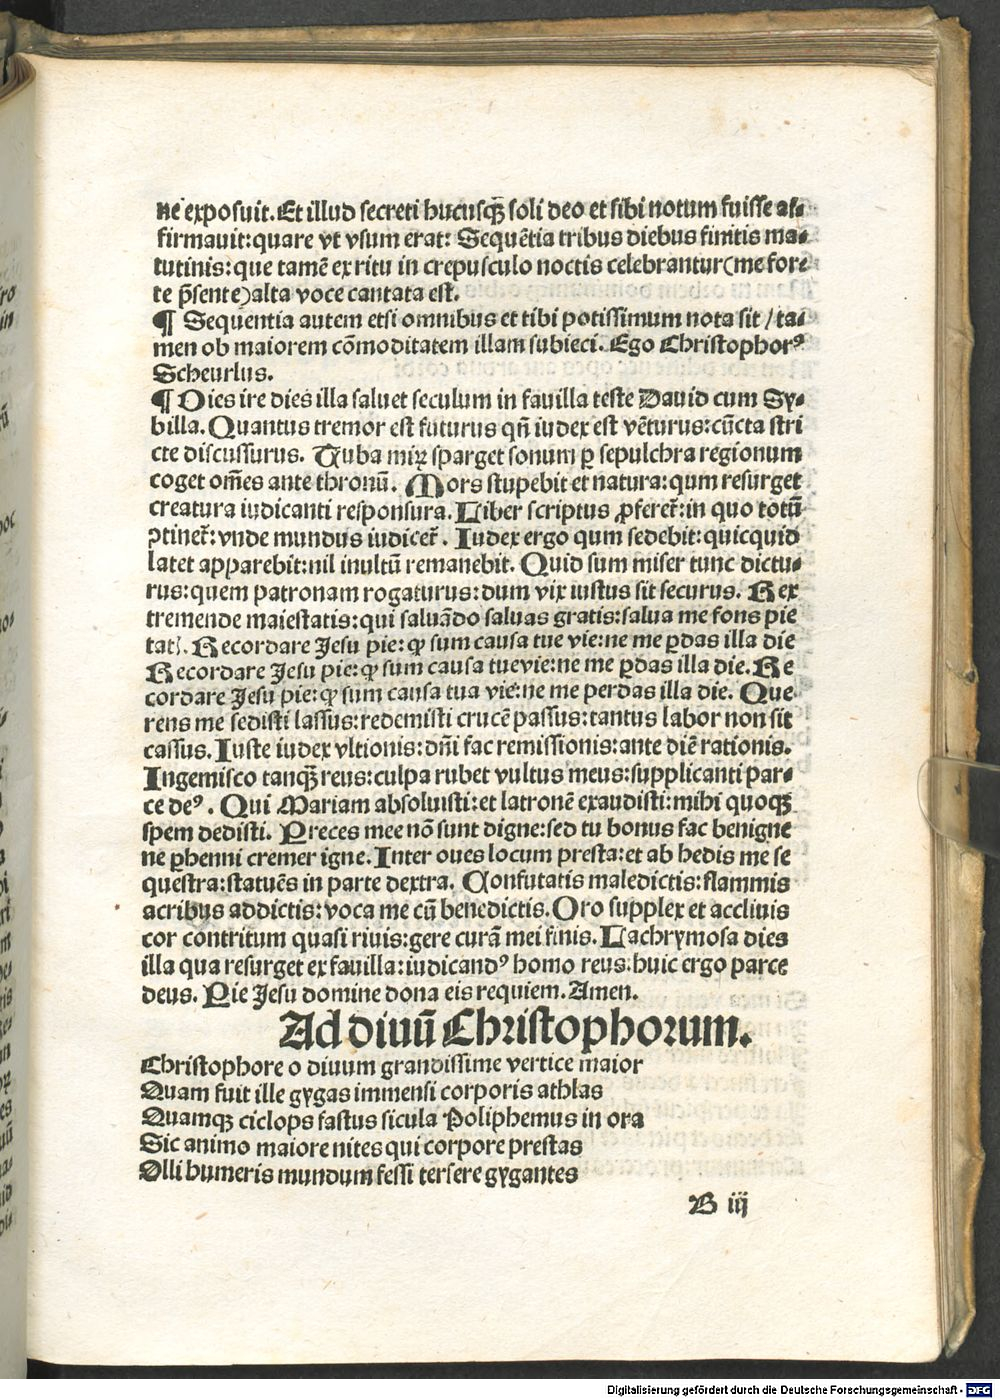 ne exposuit. Et illud secreti hucusqꝫ soli deo et sibi notum fuisse af⸗
firmauit: quare vt vsum erat: Sequẽtia tribus diebus finitis ma⸗
tutinis: que tamẽ ex ritu in crepusculo noctis celebrantur (me for⸗
te p̃sente) alta voce cantata est.
¶ Sequentia autem etsi omnibus et tibi potissimum nota sit / ta⸗
men ob maiorem cõmoditatem illam subieci. Ego Christophorꝰ
Scheurlus.
¶ Dies ire dies illa saluet seculum in fauilla teste Dauid cum Sy⸗
billa. Quantus tremor est futurus qñ iudex est vẽturus: cũcta stri
cte discussurus. Tuba mirꝫ sparget sonum ꝑ sepulchra regionum
coget om̃es ante thronũ. Mors stupebit et natura: qum resurget
creatura iudicanti responsura. Liber scriptus ꝓferet᷑: in quo totũ
ꝯtinet᷑: vnde mundus iudicet᷑. Iudex ergo qum sedebit: quicquid
latet apparebit: nil inultũ remanebit. Quid sum miser tunc dictu⸗
rus: quem patronam rogaturus: dum vix iustus sit securus. Rex
tremende maiestatis: qui saluãdo saluas gratis: salua me fons pie
tatꝭ. Recordare Jesu pie: ꝙ sum causa tue vie: ne me ꝑdas illa die
Recordare Jesu pie: ꝙ sum causa tue vie: ne me ꝑdas illa die. Re
cordare Jesu pie: ꝙ sum causa tua vie: ne me perdas illa die. Que
rens me sedisti lassus: redemisti crucẽ passus: tantus labor non sit
cassus. Iuste iudex vltionis: dñi fac remissionis: ante diẽ rationis.
Ingemisco tanqꝫ reus: culpa rubet vultus meus: supplicanti par⸗
ce deꝰ. Qui Mariam absoluisti: et latronẽ exaudisti: mihi quoqꝫ
spem dedisti. Preces mee nõ sunt digne: sed tu bonus fac benigne
ne ꝑhenni cremer igne. Inter oues locum presta: et ab hedis me se
questra: statuẽs in parte dextra. Confutatis maledictis: flammis
acribus addictis: voca me cũ benedictis. Oro supplex et accliuis
cor contritum quasi riuis: gere curã mei finis. Lachrymosa dies
illa qua resurget ex fauilla: iudicandꝰ homo reus: huic ergo parce
deus. Pie Jesu domine dona eis requiem. Amen.
Ad diuũ Christophorum.
Christophore o diuum grandissime vertice maior
Quam fuit ille gygas immensi corporis athlas
Quamqꝫ ciclops fastus sicula Poliphemus in ora
Sic animo maiore nites qui corpore prestas
Olli humeris mundum fessi terfere gygantes
B iij
Digitalisierung gefördert durch die Deutsche Forschungsgemeinschaft - DFG